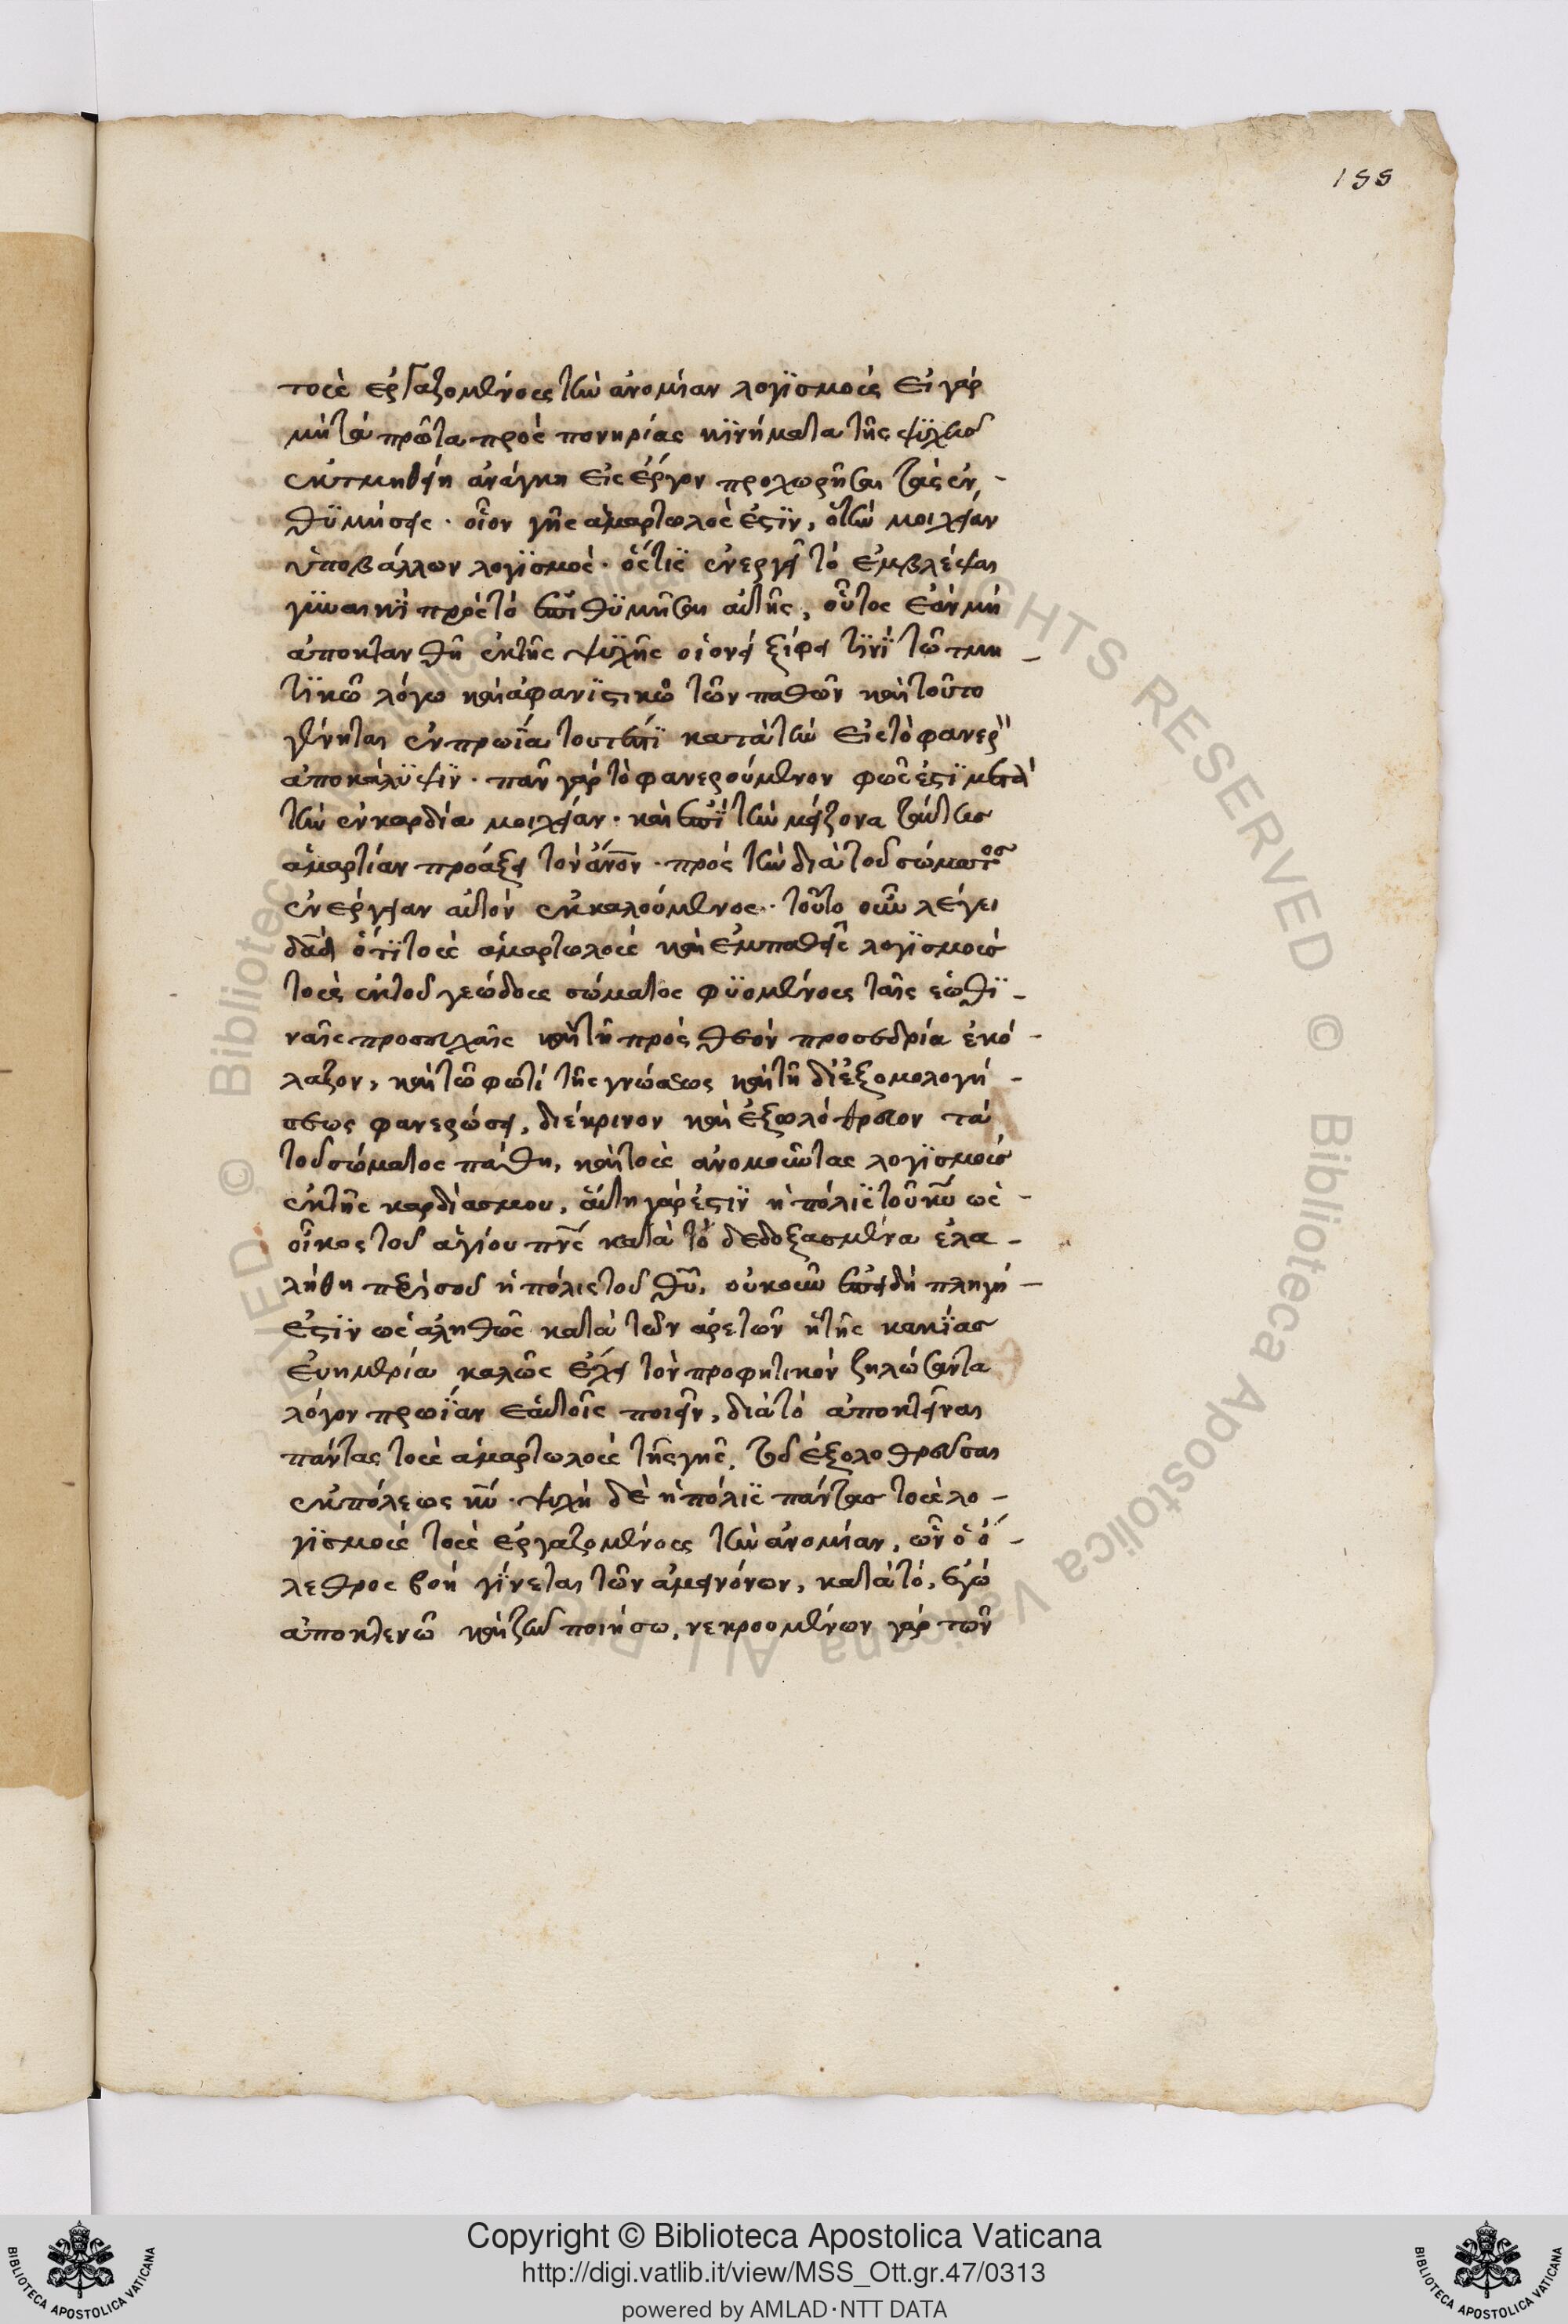 155
τοὺς ἐργαζομένους τὴν ἀνομίαν λογϊσμοὺς εἰ γὰρ
μὴ τὰ πρῶτα πρὸς πονηρίας κϊνήματα τῆς ψϋχῆς
ἐκτμηθείη ἀνάγκη εἰς ἔργον προχωρῆσαι τὰς ἐν-
θϋμήσεις · οἷον γῆς ἁμαρτωλὸς ἐστϊν, ὁ τὴν μοιχείαν
ὑποβάλλων λογϊσμὸς · ὅστις ἐνεργεῖ τὸ ἐμβλέψαι
γϋναικϊ πρὸς τὸ ἐπιθϋμῆσαι αὐτῆς, οὗτος ἐὰν μὴ
ἀποκτανθῆ ἐκ τῆς ψϋχῆς οἱονεὶ ξίφει τϊνϊ τῶ τμη-
τϊκῶ λόγω καὶ ἀφανϊστικῶ τῶν παθῶν καὶ τοῦτο
γένηται ἐν πρωΐα τουτέστϊ κατὰ τὴν εἰς τὸ φανερὸν
ἀποκάλϋψϊν · πᾶν γὰρ τὸ φανερούμενον φῶς ἐστϊ μετὰ
τὴν ἐν καρδία μοιχείαν · καὶ ἐπὶ τὴν μείζονα ταύτης
ἁμαρτίαν προάξει τὸν ἄνον · πρὸς τὴν διὰ τοῦ σώματος
ἐνέργειαν αὐτὸν ἐκκαλούμενος · τοῦτο οὖν λέγει
δαδ ὅτϊ τοὺς ἁμαρτωλοὺς καὶ ἐμπαθεῖς λογϊσμοὺς
τοὺς ἐκ τοῦ γεώδους σώματος φϋομένους ταῖς ἑωθϊ-
ναῖς προσευχαῖς καὶ τῆ πρὸς θεὸν προσεδρία ἐκό-
λαζον, καὶ τῶ φωτὶ τῆς γνώσεως καὶ τῆ δι' ἐξομολογή-
σεως φανερώσει, διέκρινον καὶ ἐξωλόθρευον τὰ
τοῦ σώματος πάθη, καὶ τοὺς ἀνομοῦντας λογϊσμοὺς
ἐκ τῆς καρδίας μου, αὕτη γάρ ἐστϊν ἡ πόλϊς τοῦ κυ ὡς
οἶκος τοῦ ἁγίου πνς κατὰ τὸ δεδοξασμένα ἐλα-
λήθη περὶ σοῦ ἡ πόλις τοῦ θυ, οὐκοῦν ἐπειδὴ πληγή
ἐστϊν ὡς ἀληθῶς κατὰ τῶν ἀρετῶν ἡ τῆς κακϊας
εὐημερία καλῶς ἔχει τὸν προφητικὸν ζηλώσαντα
λόγον πρωΐαν ἑαυτοῖς ποιεῖν, διὰ τὸ ἀποκτεῖναι
πάντας τοὺς ἁμαρτωλοὺς τῆς γῆς, τοῦ ἐξολοθρεῦσαι
ἐκ πόλεως κυ · ψυχὴ δὲ ἡ πόλϊς πάντας τοὺς λο-
γϊσμοὺς τοὺς ἐργαζομένους τὴν ἀνομίαν, ὧν ὁ ὄ-
λεθρος ζωὴ γίνεται τῶν ἀμεινόνων, κατὰ τὸ, ἐγὼ
ἀποκτενῶ καὶ ζῆν ποιήσω, νεκρουμένων γὰρ τῶν
Copyright © Biblioteca Apostolica Vaticana
http://digi.vatlib.it/view/MSS_Ott.gr.47/0313
powered by AMLAD·NTT DATA